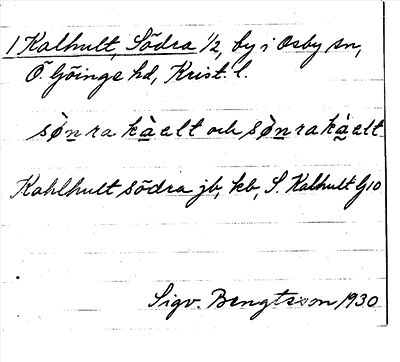 1 Kalhult, Södra 1/2, by i Osby sn,
Ö. Göinge hd, Krist. l.
sø̀n ra kàelt och sø̀n ra kàelt
Kahlhult södra jb, kb, S. Kalhult G10
Sigv. Bengtsson 1930